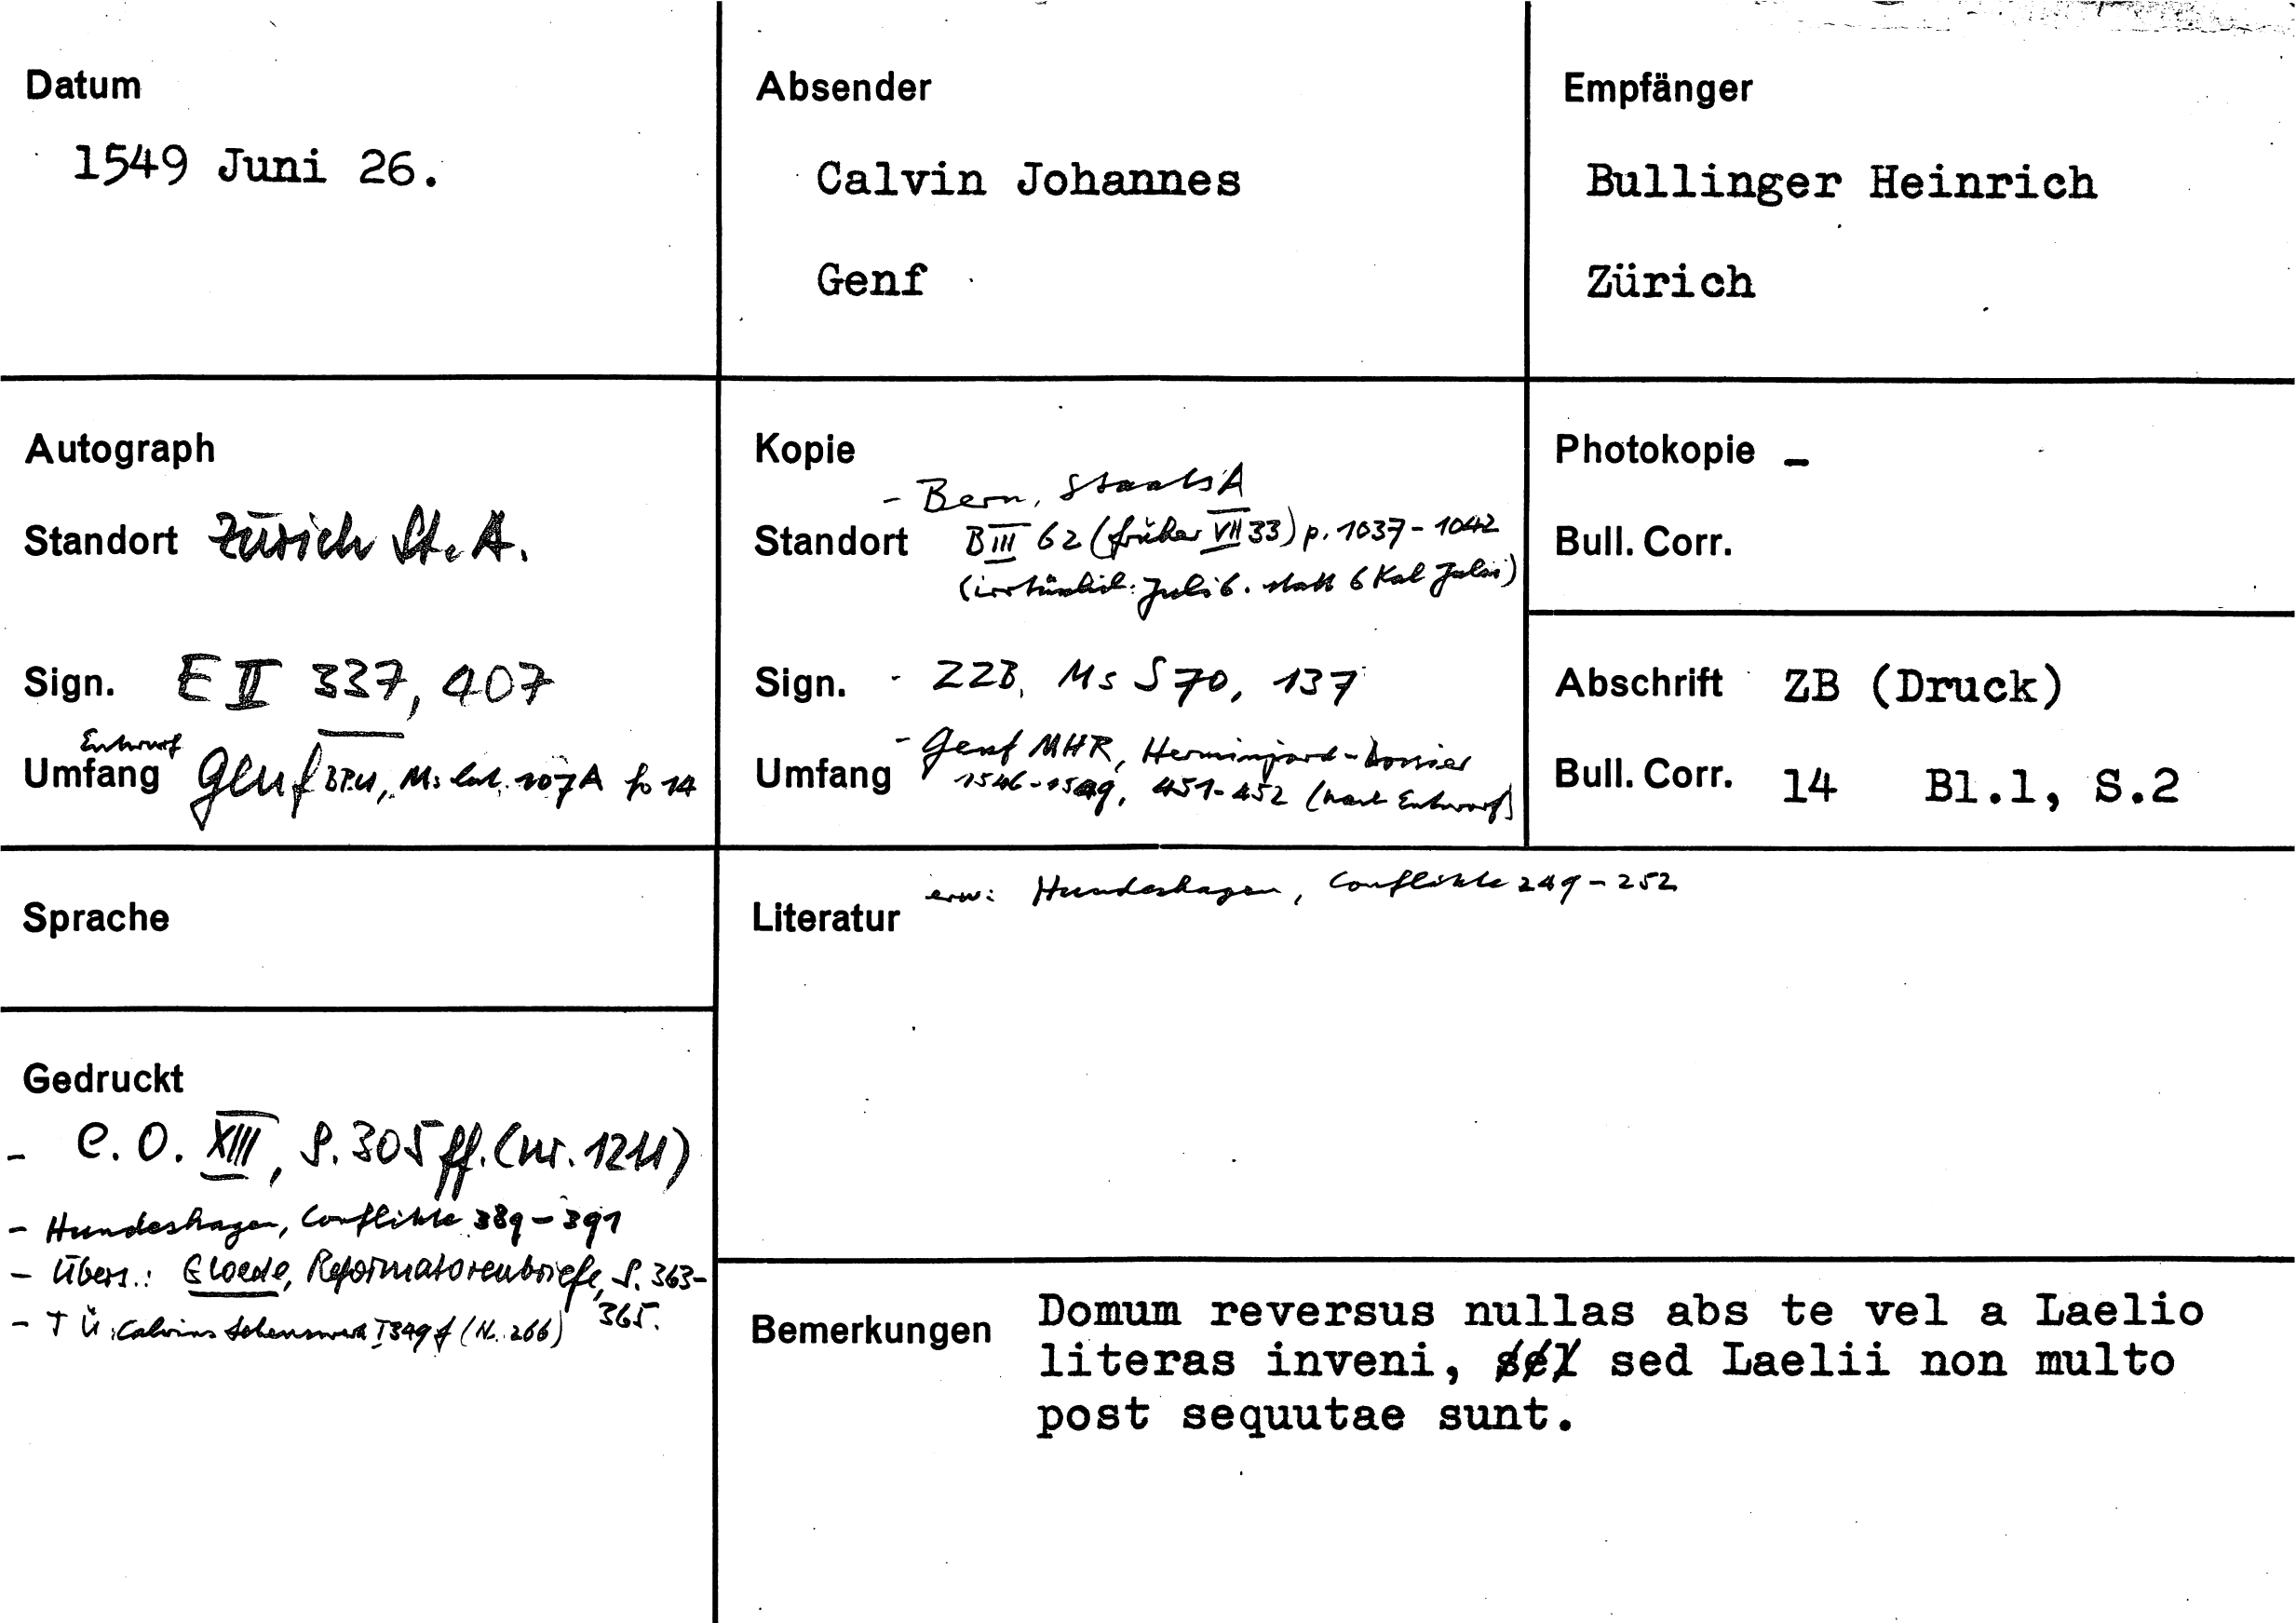 Datum
1549 Juni 26.
Absender
Calvin Johannes
Genf
Empfänger
Bullinger Heinrich
Zürich
Autograph
Standort Zürich St.A.
Sign. E II 337, 407
Entwurf
Umfang Genf BPU, Ms lat. 107A fo 14
Kopie
- Bern, StaatsA
Standort B III 62 (früher VII 33) p. 1037-1042
(irrtümlich: Juli 6. statt 6 Kal Julii)
Sign. - ZZB, Ms S 70, 137
- Genf MHR, Herminjard-Dossier
Umfang 1546-1549, 451-452 (nach Entwurf)
Photokopie -
Bull. Corr.
Abschrift ZB (Druck)
Bull. Corr. 14 Bl.1, S.2
Sprache
erw: Hundeshagen, Conflikte 249-252
Literatur
Gedruckt
- C. O. XIII, S. 305 ff. (nr. 1211)
- Hundeshagen, Conflikte 389-391
- Übers.: Gloede, Reformatorenbriefe, S. 363-
365.
- T Ü: Calvins Lebenswerk I 349f (N. 266)
Bemerkungen Domum reversus nullas abs te vel a Laelio
literas inveni, sed Laelii non multo
post sequutae sunt.